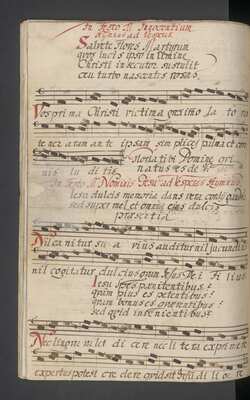 In Festo SS Innocentium
Hymnus ad Laudes
Salvete flores Martyrum
quos lucis ipso in limine
Christi insecutor sustulit
ceu turbo nascentes rosas.
Vos prima Christi victima grex immola to ru
te ner aram ante ip sam sim plices palma et co
Gloria tibi Domine qui
nis lu di tis natus es de
In Festo SS Nominis Jesu ad Vesperas Hymnus
Iesu dulcis memoria dans vera cordis gaudia
sed super mel et omnia ejus dulcis
praesentia
Nil canitur su a vius auditur nil jucundius
nil cogitatur dulcius quam Jesus De i Fi lius
Iesu spes paenitentibus
quam pius es petentibus
quam bonus es quaerentibus
sed quid invenientibus
Nec lingua valet di ce re nec lit te ra exprimere
expertus potest cre dere quid sit Jesum di li ge re